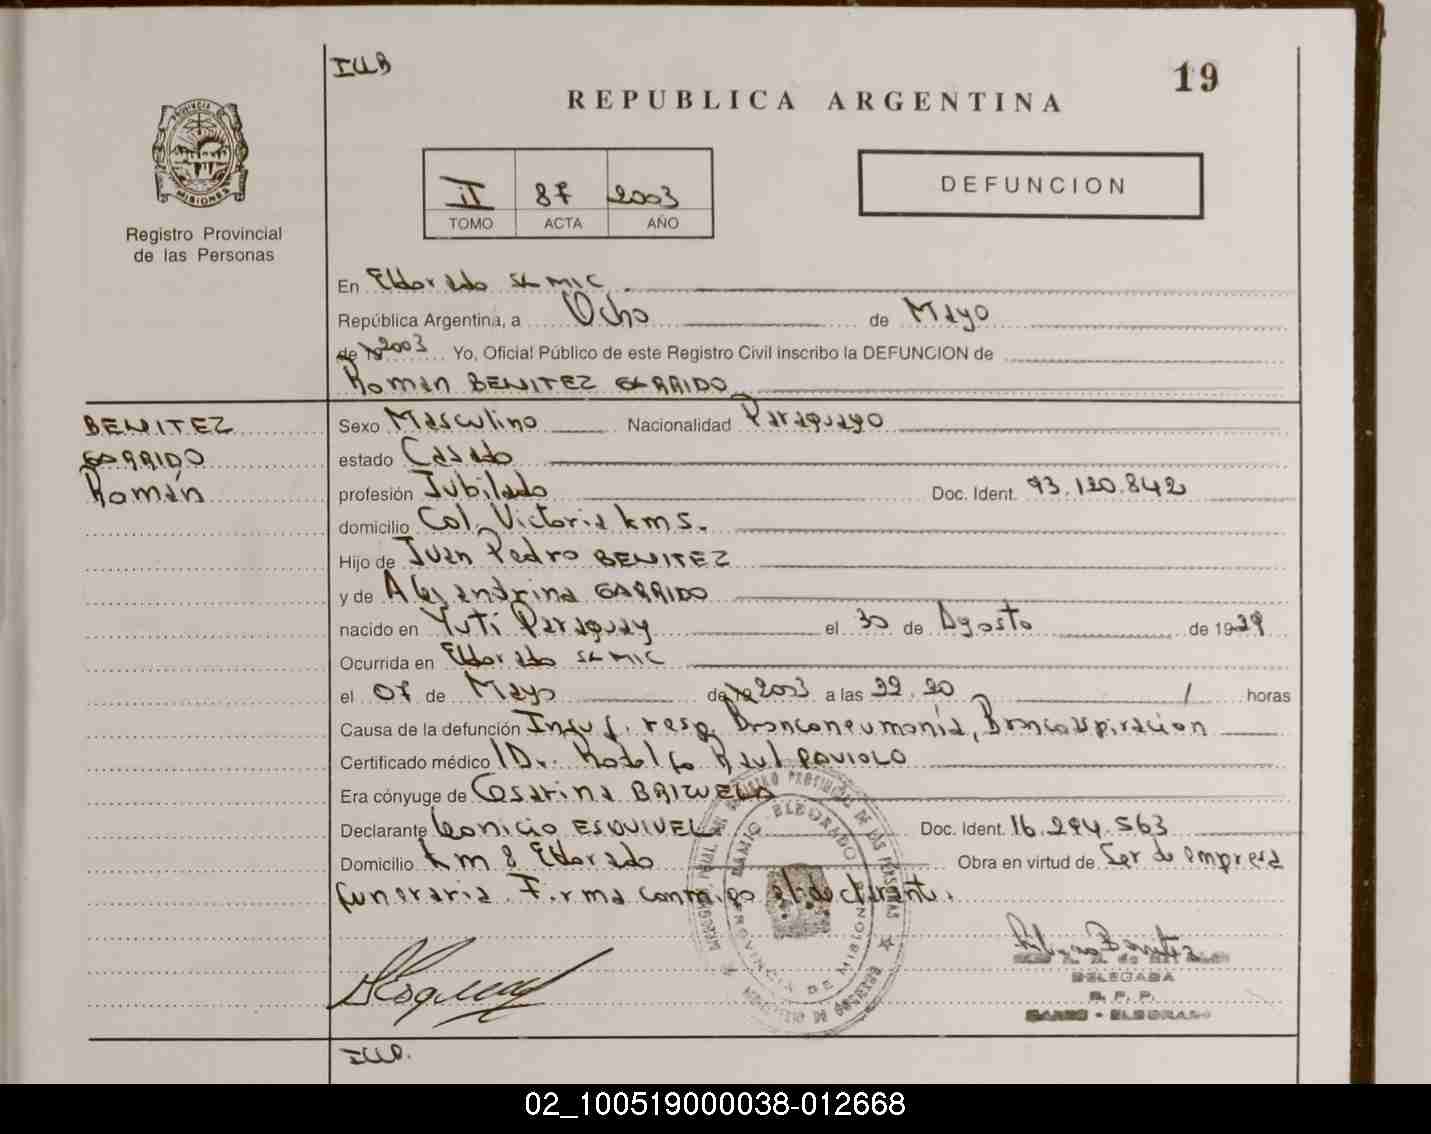 IUB
19
REPUBLICA ARGENTINA
PROVINCIA
MISIONES
Registro Provincial
de las Personas
II 87 2003
TOMO ACTA AÑO
DEFUNCION
En Eldorado SL MIC
República Argentina, a Ocho de Mayo
de 19 2003 Yo, Oficial Público de este Registro Civil inscribo la DEFUNCION de
Román BENITEZ GARRIDO
BENITEZ
GARRIDO
Román
Sexo Masculino Nacionalidad Paraguayo
estado Casado
profesión Jubilado Doc. Ident. 93.120.842
domicilio Col. Victoria km 5.
Hijo de Juan Pedro BENITEZ
y de Alejandrina GARRIDO
nacido en Yuti Paraguay el 30 de Agosto de 1929
Ocurrida en Eldorado SL MIC
el 07 de Mayo de 19 2003 a las 22.20 / horas
Causa de la defunción Insuf. resp. Bronconeumonía, Broncoaspiración
Certificado médico Dr. Rodolfo Raul POVIOLO
Era cónyuge de Cesarina BRIZUELA
Declarante Leonicio ESQUIVEL Doc. Ident. 16.294.563
Domicilio Km 8 Eldorado Obra en virtud de Ser de empresa
funeraria. Firma conmigo el declarante.
REGISTRO PROVINCIAL DE LAS PERSONAS
ELDORADO
PROVINCIA DE MISIONES
DELEGADA
R. P. P.
ELDORADO
02_100519000038-012668